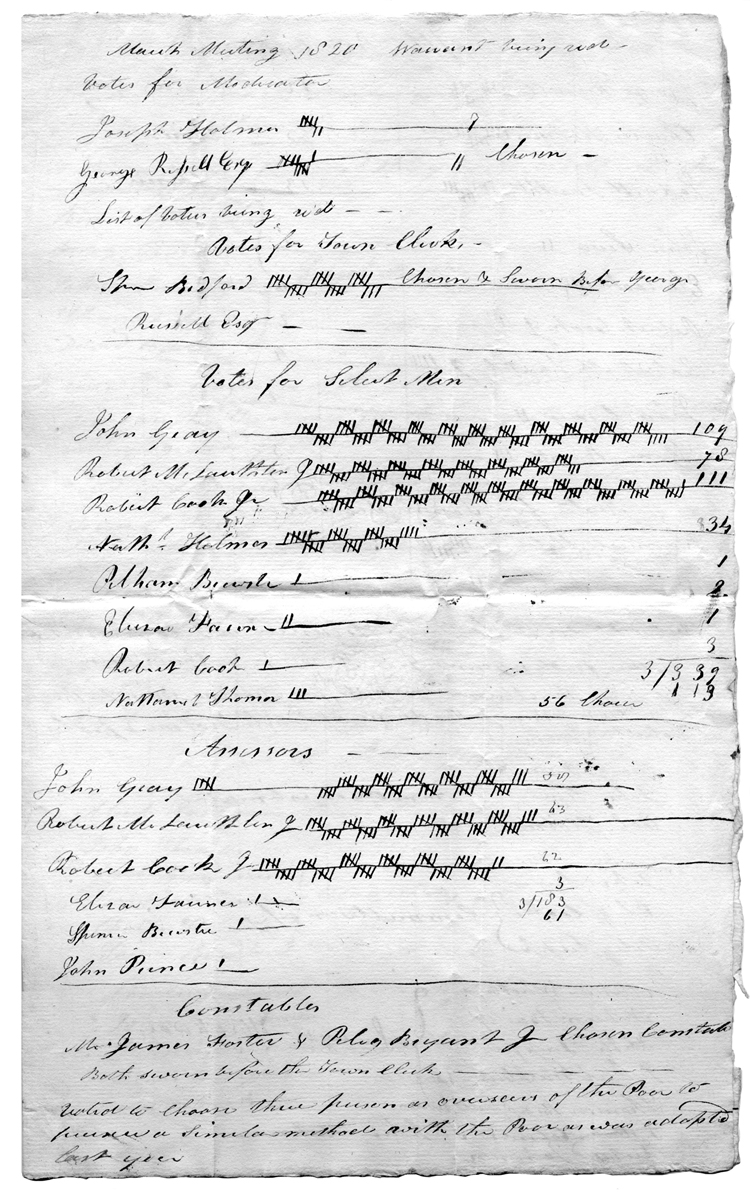 March Meeting 1820 Warrant being red
Votes for Moderator
Joseph Holmes 7
George Russell Esq 11 Chosen
List of Voters being red
Votes for Town Clerk
Bedford Chosen & Sworn Before George
Russell Esq
Votes for Select Men
John Gray 109
Robert McLauthlen Jr 78
Robert Cook Jr 111
Nathl. Holmes 34
Pelham Brewster 1
2
Eleazar 1
3
Robert Cook 3/339
Nathaniel Thomas 113
56 Choice
Assessors
John Gray
Robert McLauthlen Jr 63
Robert Cook Jr 62
3
Eleazar 3/183
Spencer Brewster 61
John Peirce
Constables
Mr James Foster & Peleg Bryant Jr Chosen Constable
Both sworn before the Town Clerk
Voted to Choose three person as overseers of the Poor to
pursue a Similar method with the Poor as was adopted
last year